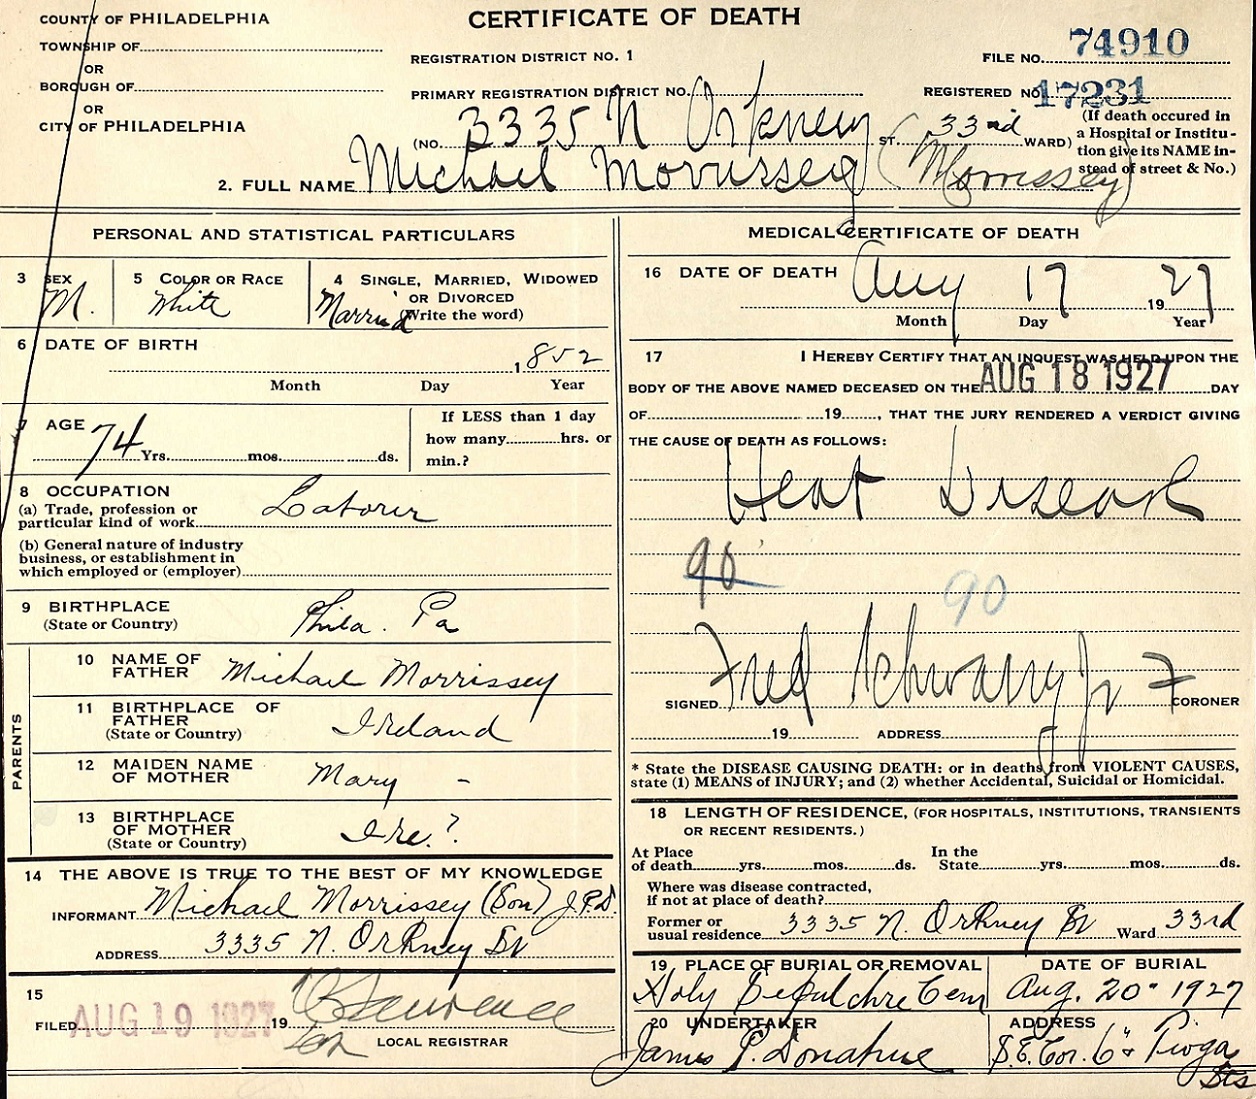 CERTIFICATE OF DEATH
COUNTY OF PHILADELPHIA
TOWNSHIP OF
OR
BOROUGH OF
OR
CITY OF PHILADELPHIA
REGISTRATION DISTRICT NO. 1
PRIMARY REGISTRATION DISTRICT NO.
FILE NO. 74910
REGISTERED NO. 17231
(NO. 3335 N Orkney ST. 33rd WARD)
(If death occured in
a Hospital or Institu-
tion give its NAME in-
stead of street & No.)
2. FULL NAME Michael Morrissey (Morrissey)
PERSONAL AND STATISTICAL PARTICULARS
3 SEX
M.
5 COLOR OR RACE
White
4 SINGLE, MARRIED, WIDOWED
OR DIVORCED
(Write the word)
Married
6 DATE OF BIRTH
1852
Month Day Year
7 AGE
74 Yrs. mos. ds.
If LESS than 1 day
how many hrs. or
min.?
8 OCCUPATION
(a) Trade, profession or
particular kind of work Laborer
(b) General nature of industry
business, or establishment in
which employed or (employer)
9 BIRTHPLACE
(State or Country) Phila. Pa
PARENTS
10 NAME OF
FATHER Michael Morrissey
11 BIRTHPLACE OF
FATHER
(State or Country) Ireland
12 MAIDEN NAME
OF MOTHER Mary -
13 BIRTHPLACE
OF MOTHER
(State or Country) Ire.?
14 THE ABOVE IS TRUE TO THE BEST OF MY KNOWLEDGE
INFORMANT Michael Morrissey (Son) J.P.D.
ADDRESS 3335 N. Orkney St
15
FILED AUG 19 1927 19
LOCAL REGISTRAR
MEDICAL CERTIFICATE OF DEATH
16 DATE OF DEATH
Aug 17 1927
Month Day Year
17 I HEREBY CERTIFY THAT AN INQUEST WAS HELD UPON THE
BODY OF THE ABOVE NAMED DECEASED ON THE AUG 18 1927 DAY
OF 19, THAT THE JURY RENDERED A VERDICT GIVING
THE CAUSE OF DEATH AS FOLLOWS:
Heart Disease
90
90
SIGNED Fred Schwarz Jr CORONER
19 ADDRESS
* State the DISEASE CAUSING DEATH: or in deaths from VIOLENT CAUSES,
state (1) MEANS of INJURY; and (2) whether Accidental, Suicidal or Homicidal.
18 LENGTH OF RESIDENCE, (FOR HOSPITALS, INSTITUTIONS, TRANSIENTS
OR RECENT RESIDENTS.)
At Place
of death yrs. mos. ds.
In the
State yrs. mos. ds.
Where was disease contracted,
if not at place of death?
Former or
usual residence 3335 N. Orkney St Ward 33rd
19 PLACE OF BURIAL OR REMOVAL
Holy Sepulchre Cem
DATE OF BURIAL
Aug. 20" 1927
20 UNDERTAKER
James P. Donahue
ADDRESS
S.E. Cor. 6" & Tioga
Sts